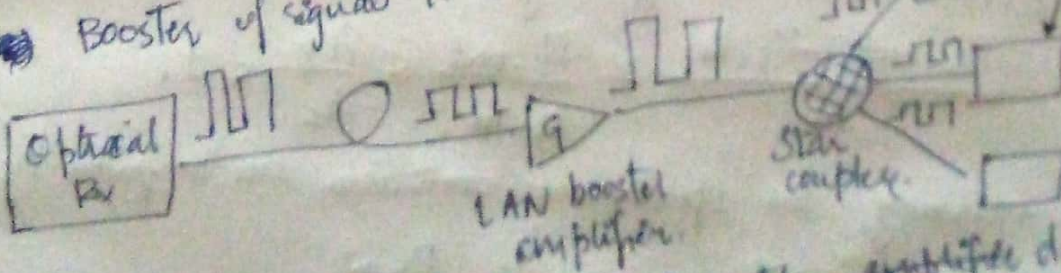 Booster of signal
Optical
Rx
G
LAN booster
amplifier.
Star
coupler.
amplifier